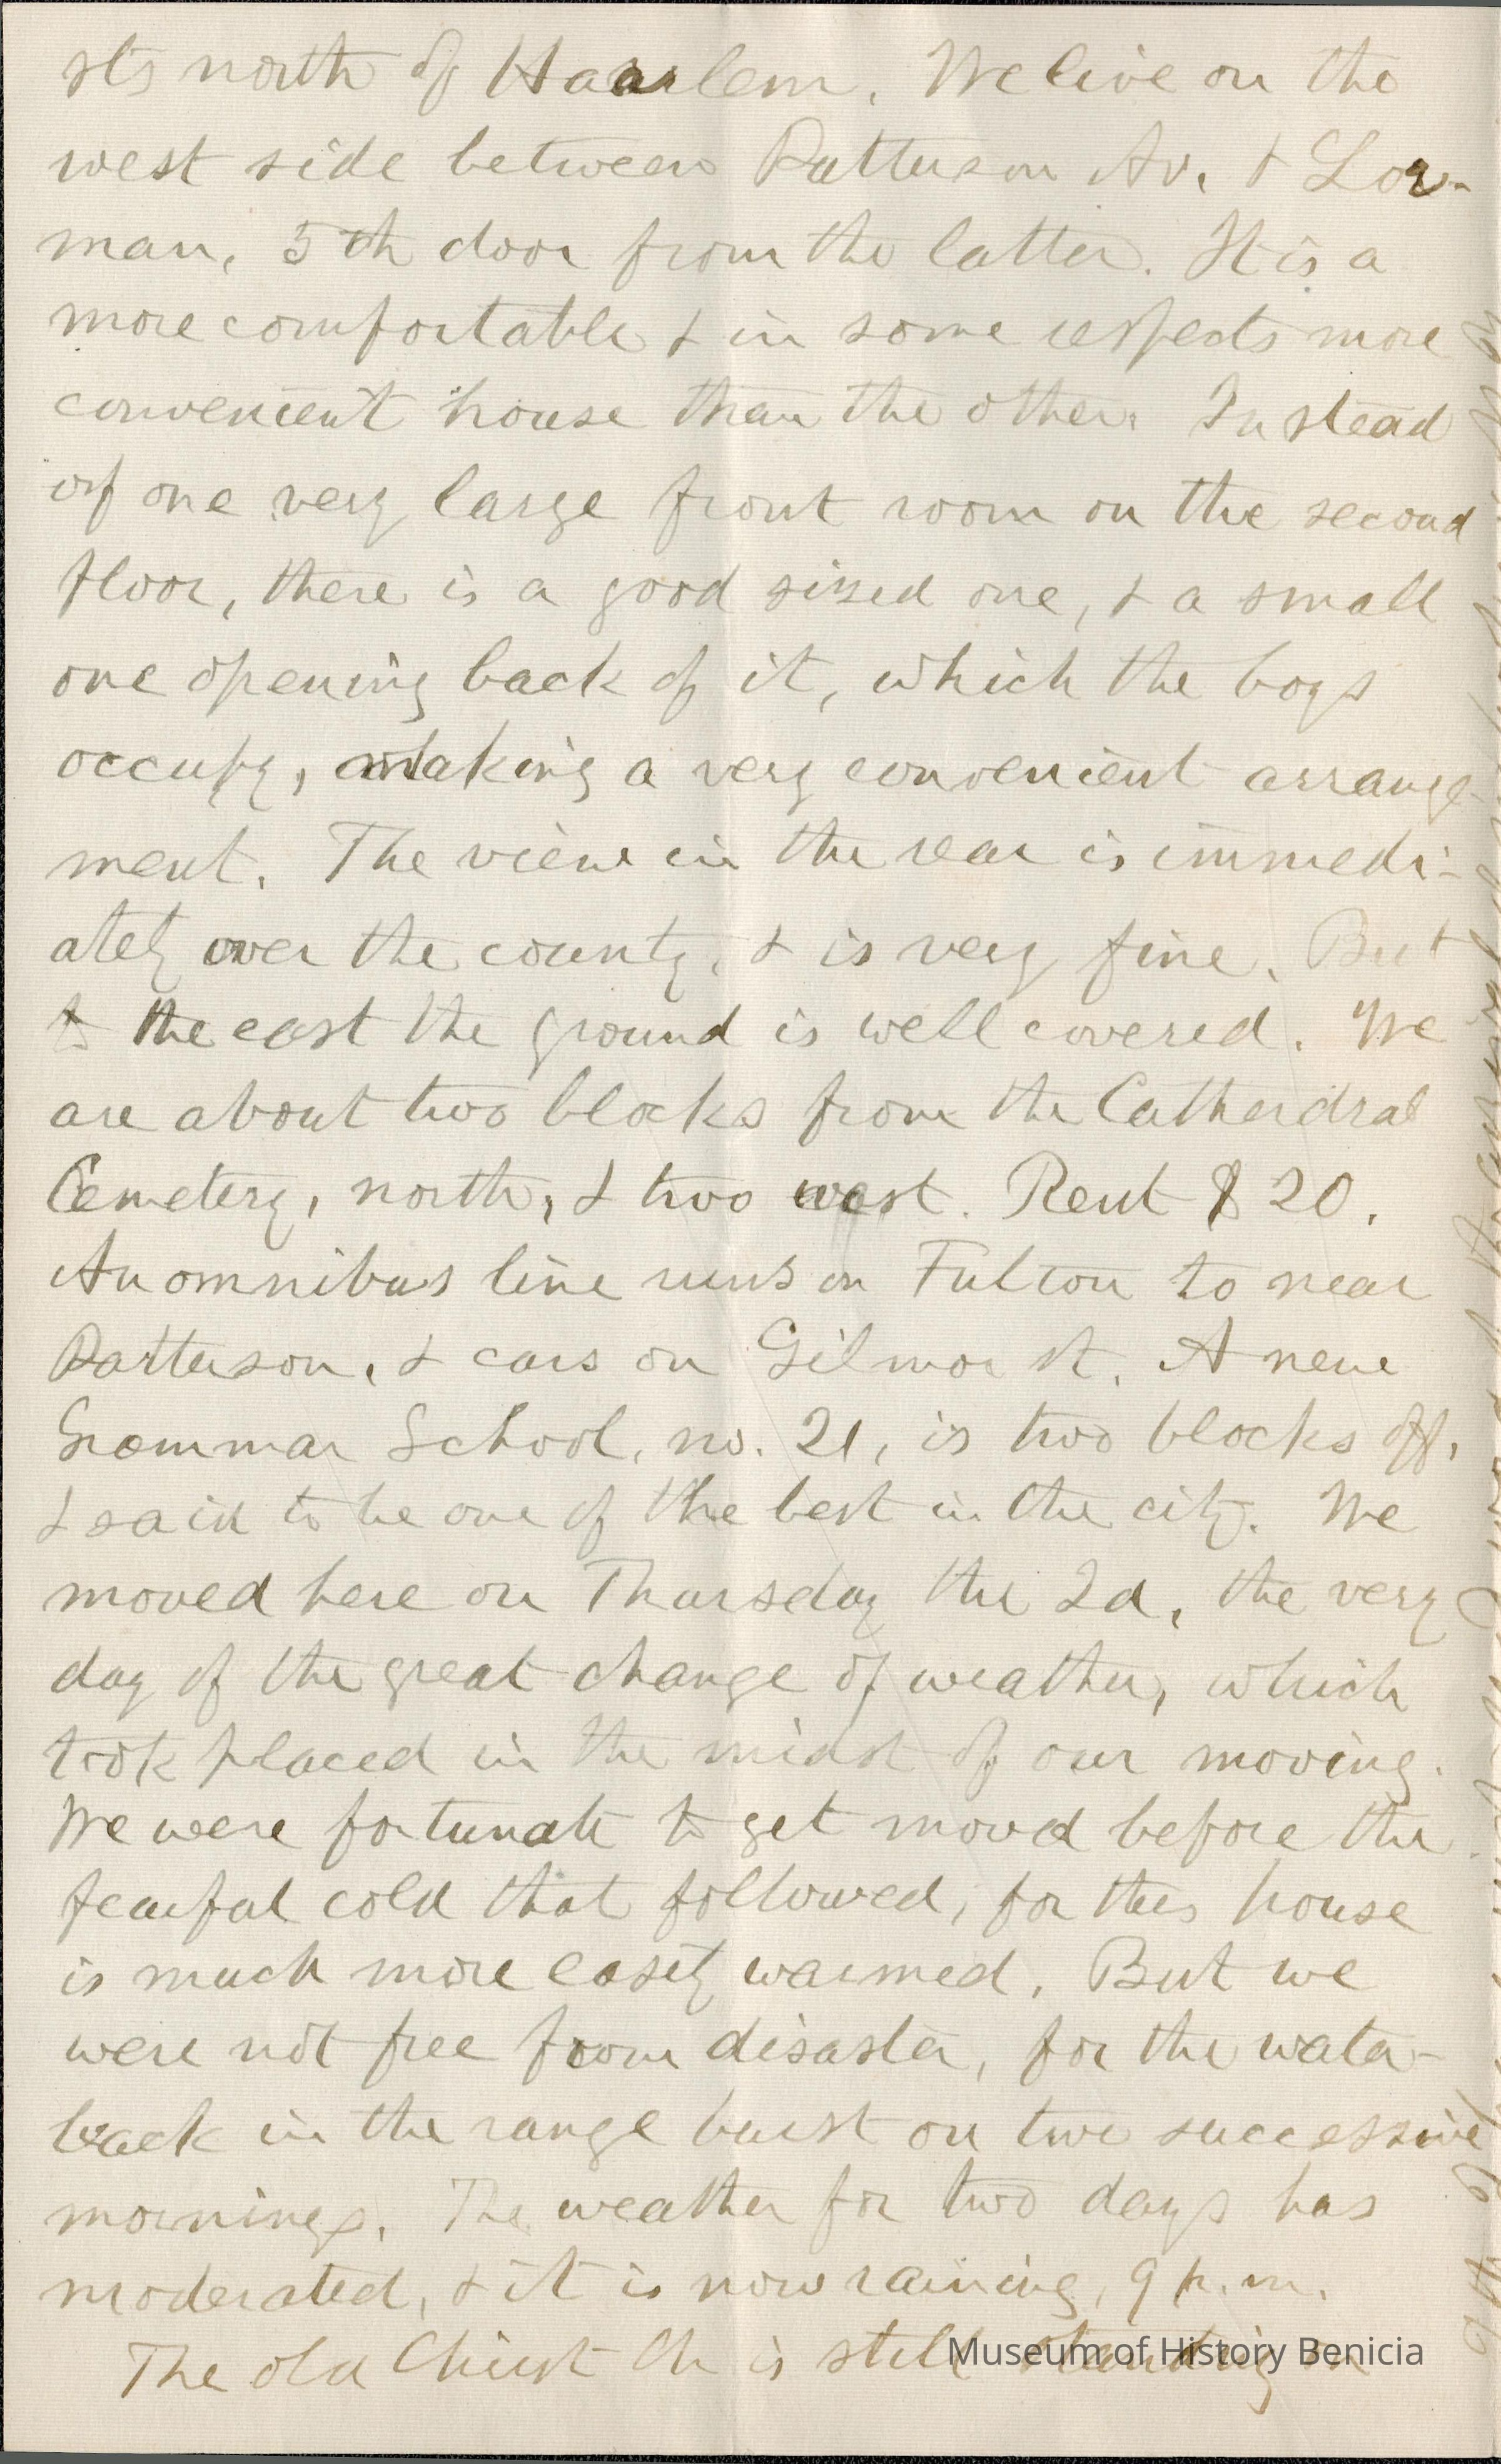 sts north of Haarlem. We live on the
west side between Patterson Av. & Lor-
man, 5th door from the latter. It is a
more comfortable & in some respects more
convenient house than the other. Instead
of one very large front room on the second
floor, there is a good sized one, & a small
one opening back of it, which the boys
occupy, making a very convenient arrange-
ment. The view in the rear is immedi-
ately over the county, & is very fine. But
to the east the ground is well covered. We
are about two blocks from the Catherdral
Cemetery, north, & two west. Rent $20.
An omnibus line runs on Fulton to near
Patterson, & cars on Gilmor st. A new
Grammar School, no. 21, is two blocks off,
& said to be one of the best in the city. We
moved here on Thursday the 2d, the very
day of the great change of weather, which
took placed in the midst of our moving.
We were fortunate to get moved before the
fearful cold that followed, for this house
is much more easily warmed. But we
were not free from disaster, for the water-
back in the range burst on two successive
mornings. The weather for two days has
moderated, & it is now raining, 9 p.m.
The old Christ Ch is still standing in
Museum of History Benicia